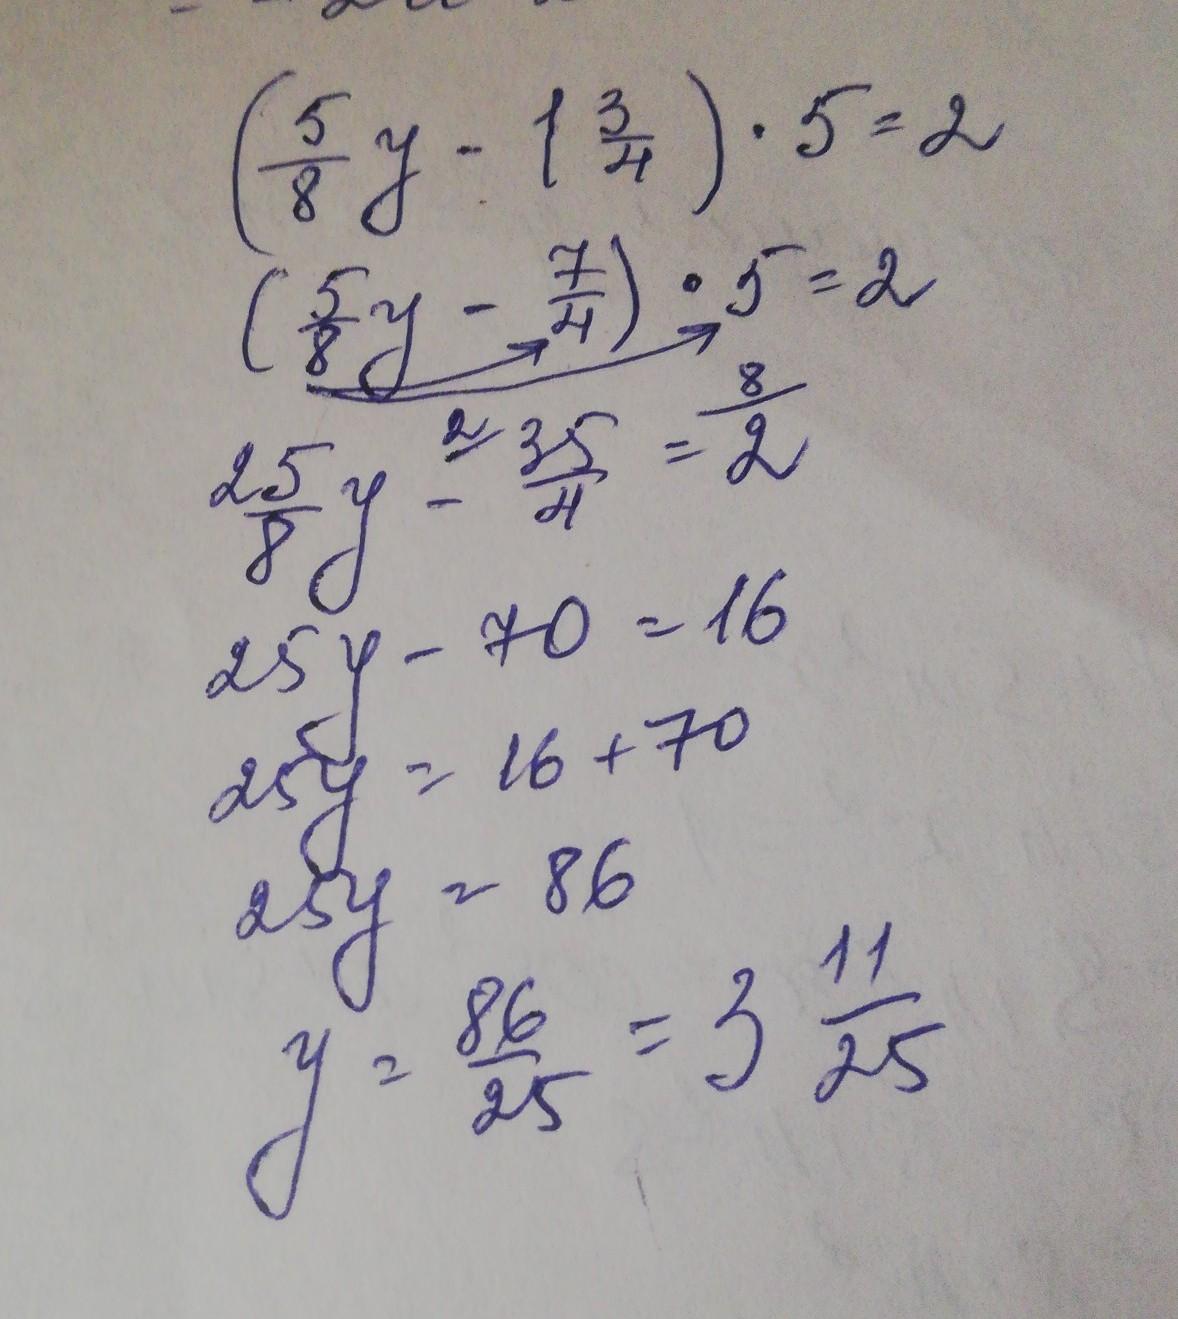 (5/8 y - 1 3/4) · 5 = 2
(5/8 y - 7/4) · 5 = 2
25/8 y - 2/ 35/4 = 8/ 2
25y - 70 = 16
25y = 16 + 70
25y = 86
y = 86/25 = 3 11/25